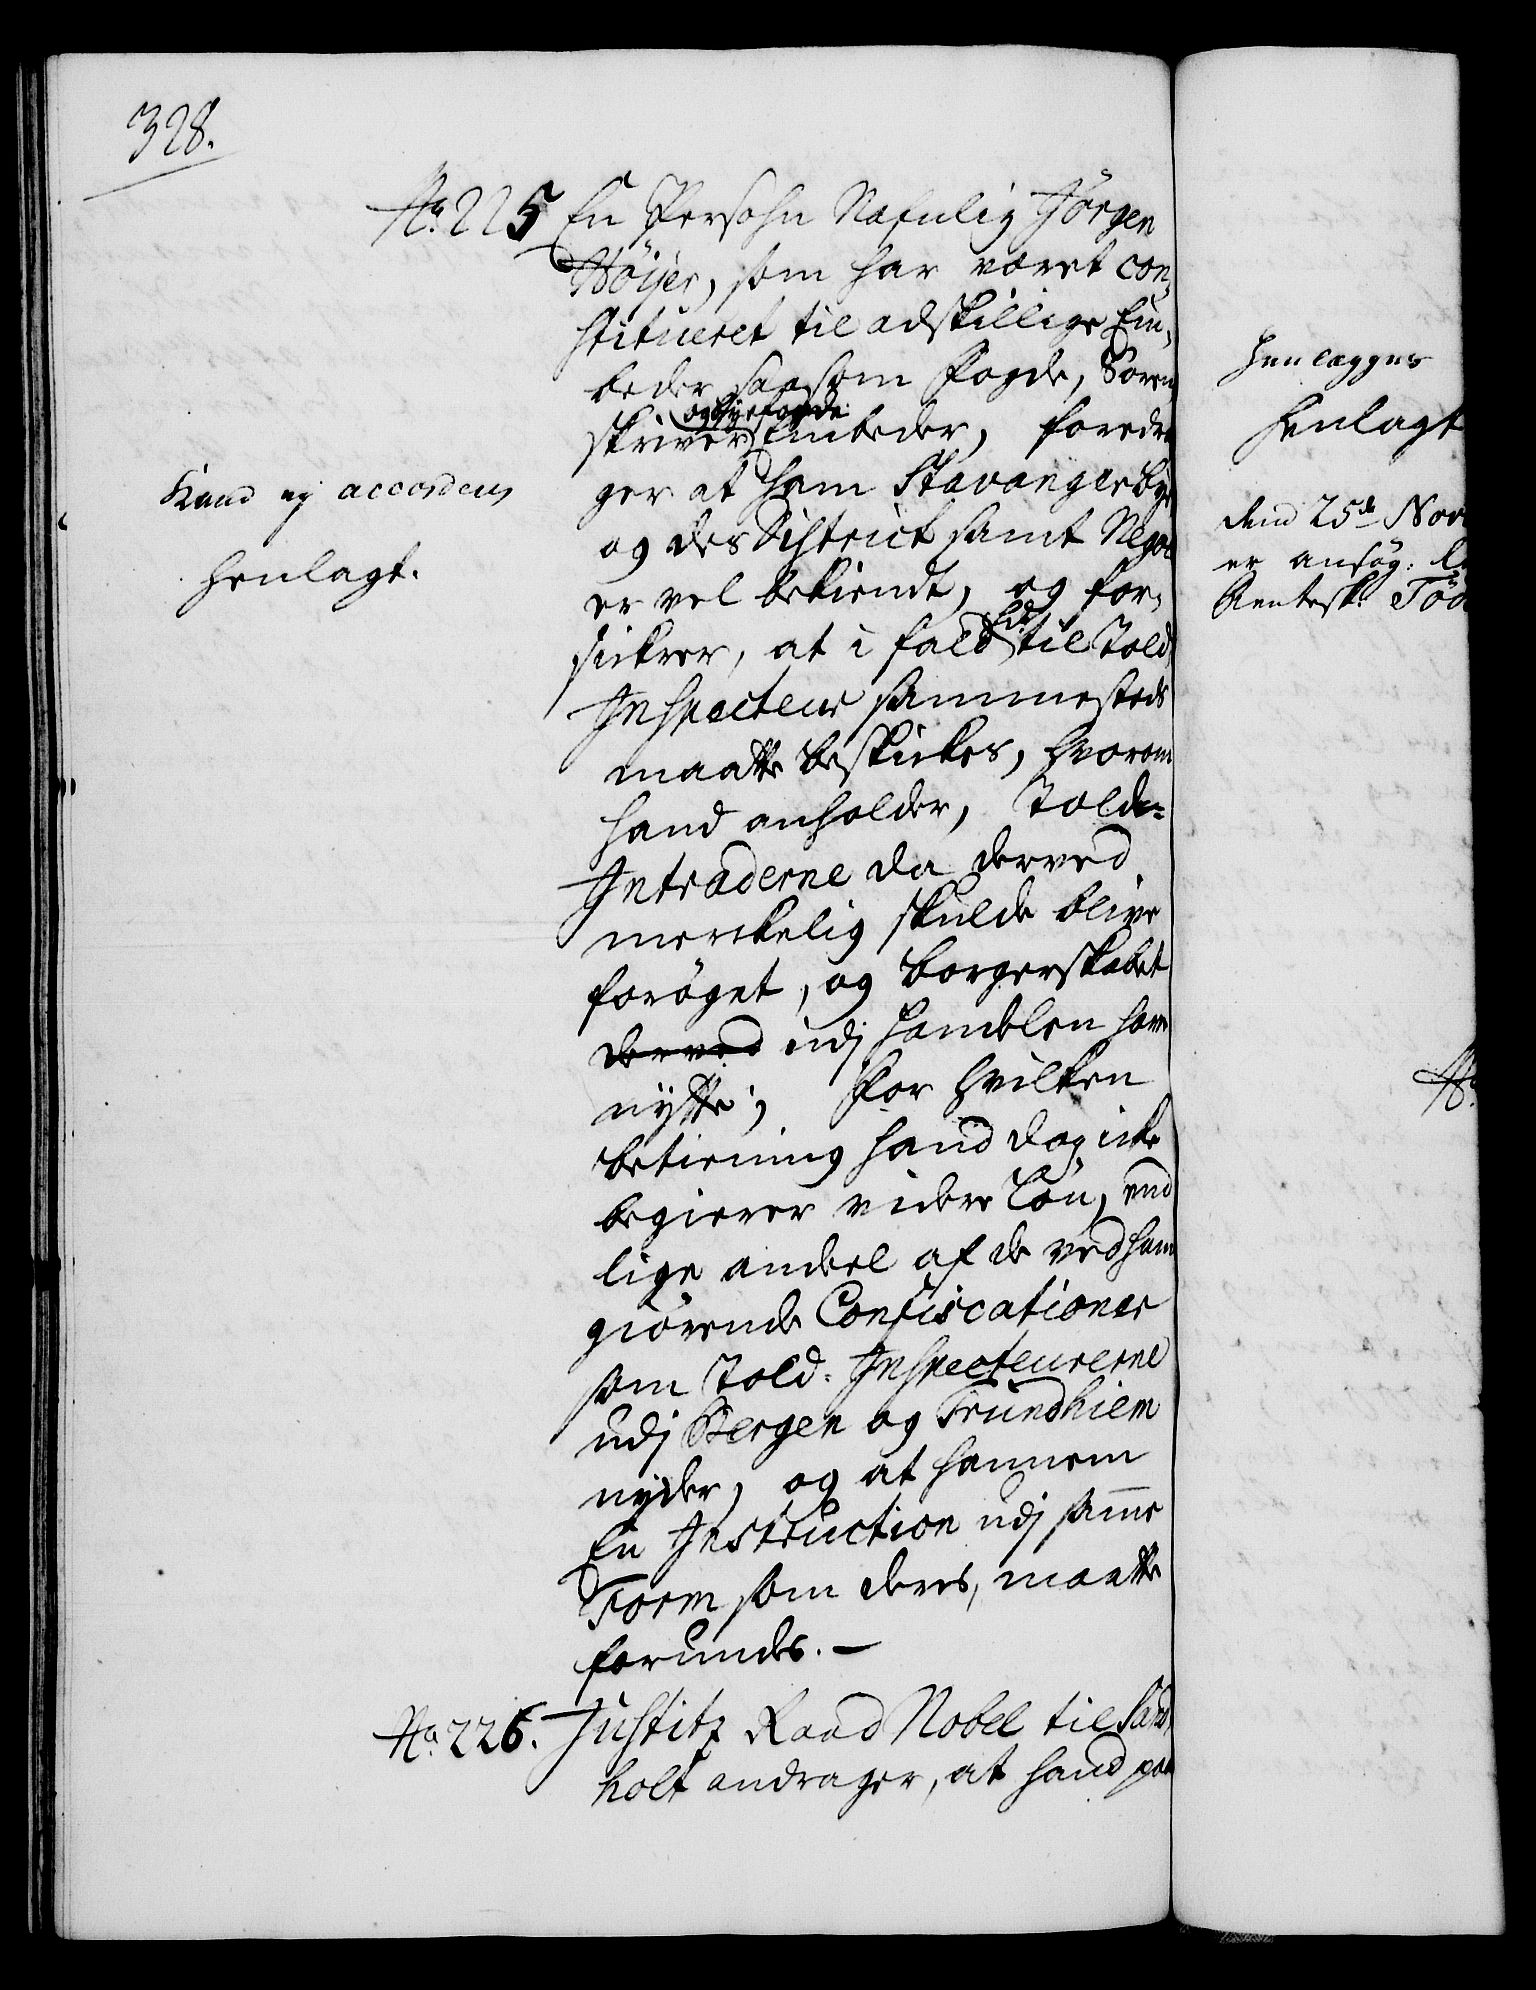 328.
No. 225 En Persohn Nafnlig Jörgen
Höijer, som har været con-
stitueret til adskillige Em-
beder saasom Foged, Soren-
skriver og Byefoged Embeder, foredra-
ger at ham Stavanger bye
Kand ej accorderes
og des District samt Negoce
henlagt.
er vel bekiendt, og for-
sickrer, at i fald hand til Told
Inspecteur sammesteds
maatte beskickes, hvorom
hand anholder, Told-
Intraderne da derved
merckelig skulde blive
forøget, og borgerskabet
derved udj handelen have
nytte; For hvilken
betiening hand dog icke
begierer videre løn, end
lige andeel af de ved ham
giörende Confiscationer
som Told-Inspecteurerne
udj Bergen og Trundhiem
nyder, og at hannem
En Instruction udj samme
Form som deres, maatte
forundes. -
No. 226. Justitz Raad Nobel til Sand-
holt andrager, at hand paa
henlægges
henlagt
dend 25de Nov
er ansøg:
Rentesk:
No